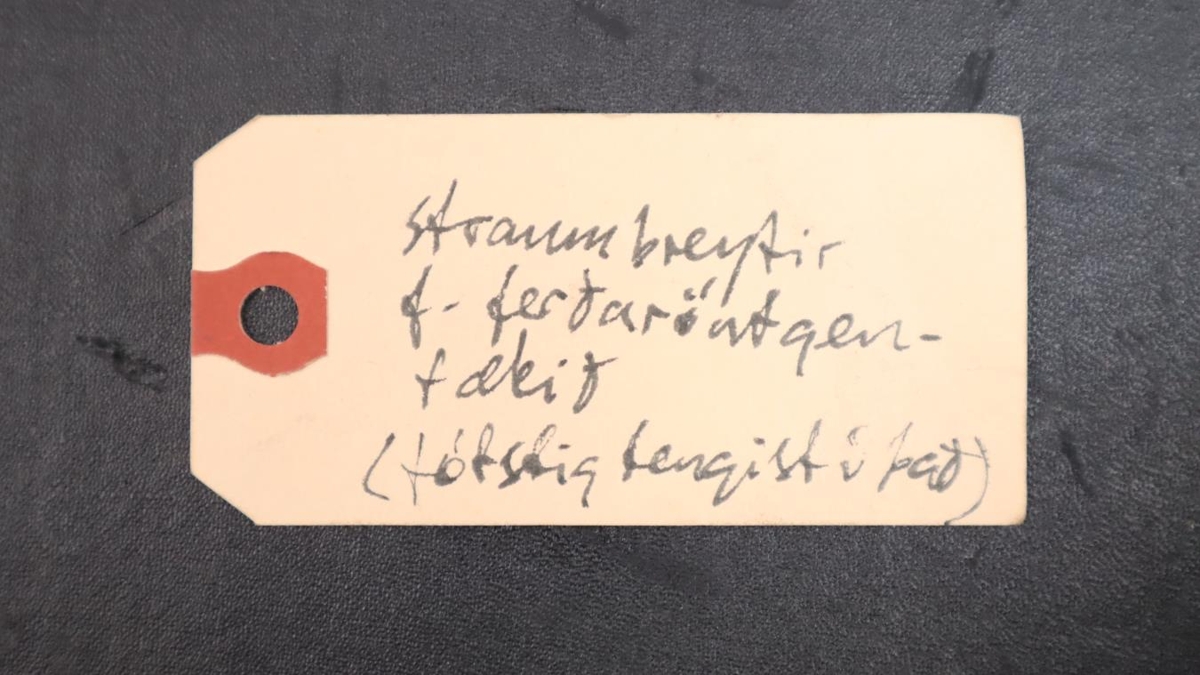 straumbreytir
f. ferðaröntgen-
tækið
(fótstig tengist í það)